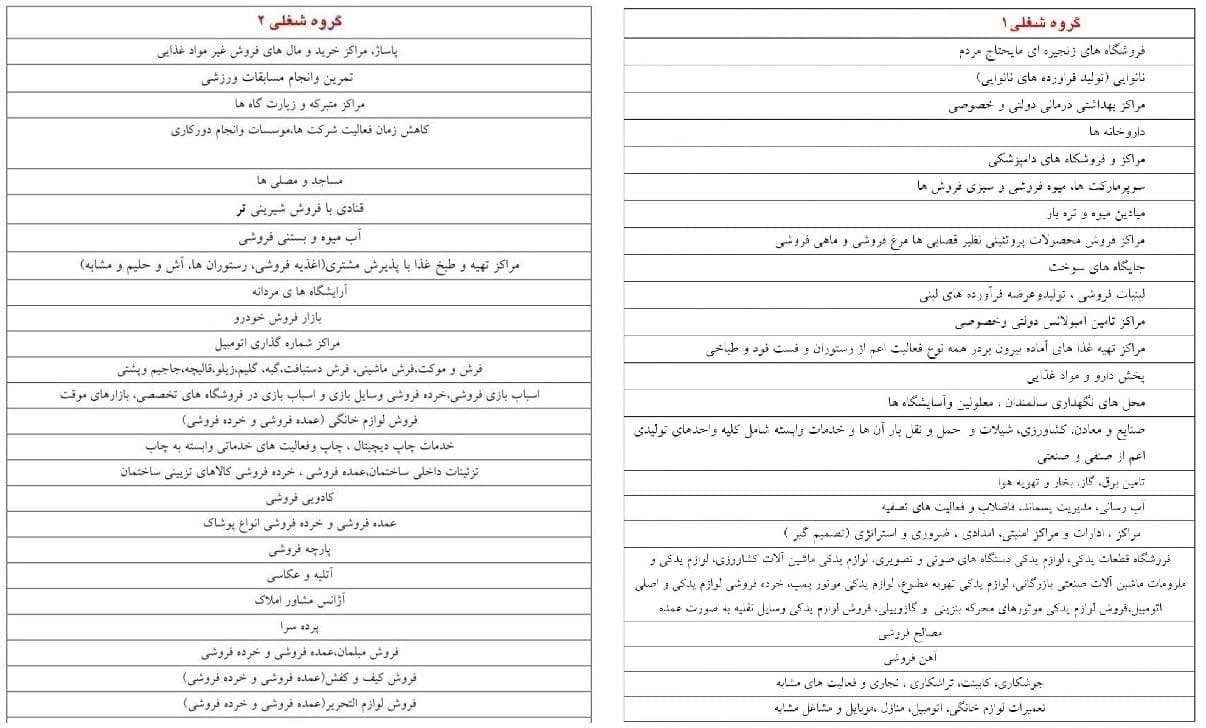 گروه شغلی ۱
فروشگاه های زنجیره ای مایحتاج مردم
نانوایی (تولید فراورده های نانوایی)
مراکز بهداشتی درمانی دولتی و خصوصی
داروخانه ها
مراکز و فروشگاه های دامپزشکی
سوپرمارکت ها، میوه فروشی و سبزی فروش ها
میادین میوه و تره بار
مراکز فروش محصولات پروتئینی نظیر قصابی ها مرغ فروشی و ماهی فروشی
جایگاه های سوخت
لبنیات فروشی ، تولیدوعرضه فرآورده های لبنی
مراکز تامین آمبولانس دولتی وخصوصی
مراکز تهیه غذا های آماده بیرون بردر همه نوع فعالیت اعم از رستوران و فست فود و طباخی
پخش دارو و مواد غذایی
محل های نگهداری سالمندان ، معلولین وآسایشگاه ها
صنایع و معادن، کشاورزی، شیلات و حمل و نقل بار آن ها و خدمات وابسته شامل کلیه واحدهای تولیدی
اعم از صنفی و صنعتی
تامین برق، گاز، بخار و تهویه هوا
آب رسانی، مدیریت پسماند، فاضلاب و فعالیت های تصفیه
مراکز ، ادارات و مراکز امنیتی، امدادی ، ضروری و استراتژی (تصمیم گیر )
فروشگاه قطعات یدکی، لوازم یدکی دستگاه های صوتی و تصویری، لوازم یدکی ماشین آلات کشاورزی، لوازم یدکی و
ملزومات ماشین آلات صنعتی بازرگانی، لوازم یدکی تهویه مطبوع، لوازم یدکی موتور پمپ، خرده فروشی لوازم یدکی و اصلی
اتومبیل،فروش لوازم یدکی موتورهای محرکه بنزینی و گازوییلی، فروش لوازم یدکی وسایل نقلیه به صورت عمده
مصالح فروشی
آهن فروشی
جوشکاری، کابینت، تراشکاری ، نجاری و فعالیت های مشابه
تعمیرات لوازم خانگی، اتومبیل، منازل ،موبایل و مشاغل مشابه
گروه شغلی ۲
پاساژ، مراکز خرید و مال های فروش غیر مواد غذایی
تمرین وانجام مسابقات ورزشی
مراکز متبرکه و زیارت گاه ها
کاهش زمان فعالیت شرکت ها،موسسات وانجام دورکاری
مساجد و مصلی ها
قنادی با فروش شیرینی تر
آب میوه و بستنی فروشی
مراکز تهیه و طبخ غذا با پذیرش مشتری(اغذیه فروشی، رستوران ها، آش و حلیم و مشابه)
آرایشگاه ها ی مردانه
بازار فروش خودرو
مراکز شماره گذاری اتومبیل
فرش و موکت،فرش ماشینی، فرش دستبافت،گبه، گلیم،زیلو،قالیچه،جاجیم وپشتی
اسباب بازی فروشی،خرده فروشی وسایل بازی و اسباب بازی در فروشگاه های تخصصی، بازارهای موقت
فروش لوازم خانگی (عمده فروشی و خرده فروشی)
خدمات چاپ دیجیتال ، چاپ وفعالیت های خدماتی وابسته به چاپ
تزئینات داخلی ساختمان،عمده فروشی ، خرده فروشی کالاهای تزیینی ساختمان
کادویی فروشی
عمده فروشی و خرده فروشی انواع پوشاک
پارچه فروشی
آتلیه و عکاسی
آژانس مشاور املاک
پرده سرا
فروش مبلمان،عمده فروشی و خرده فروشی
فروش کیف و کفش(عمده فروشی و خرده فروشی)
فروش لوازم التحریر(عمده فروشی و خرده فروشی)